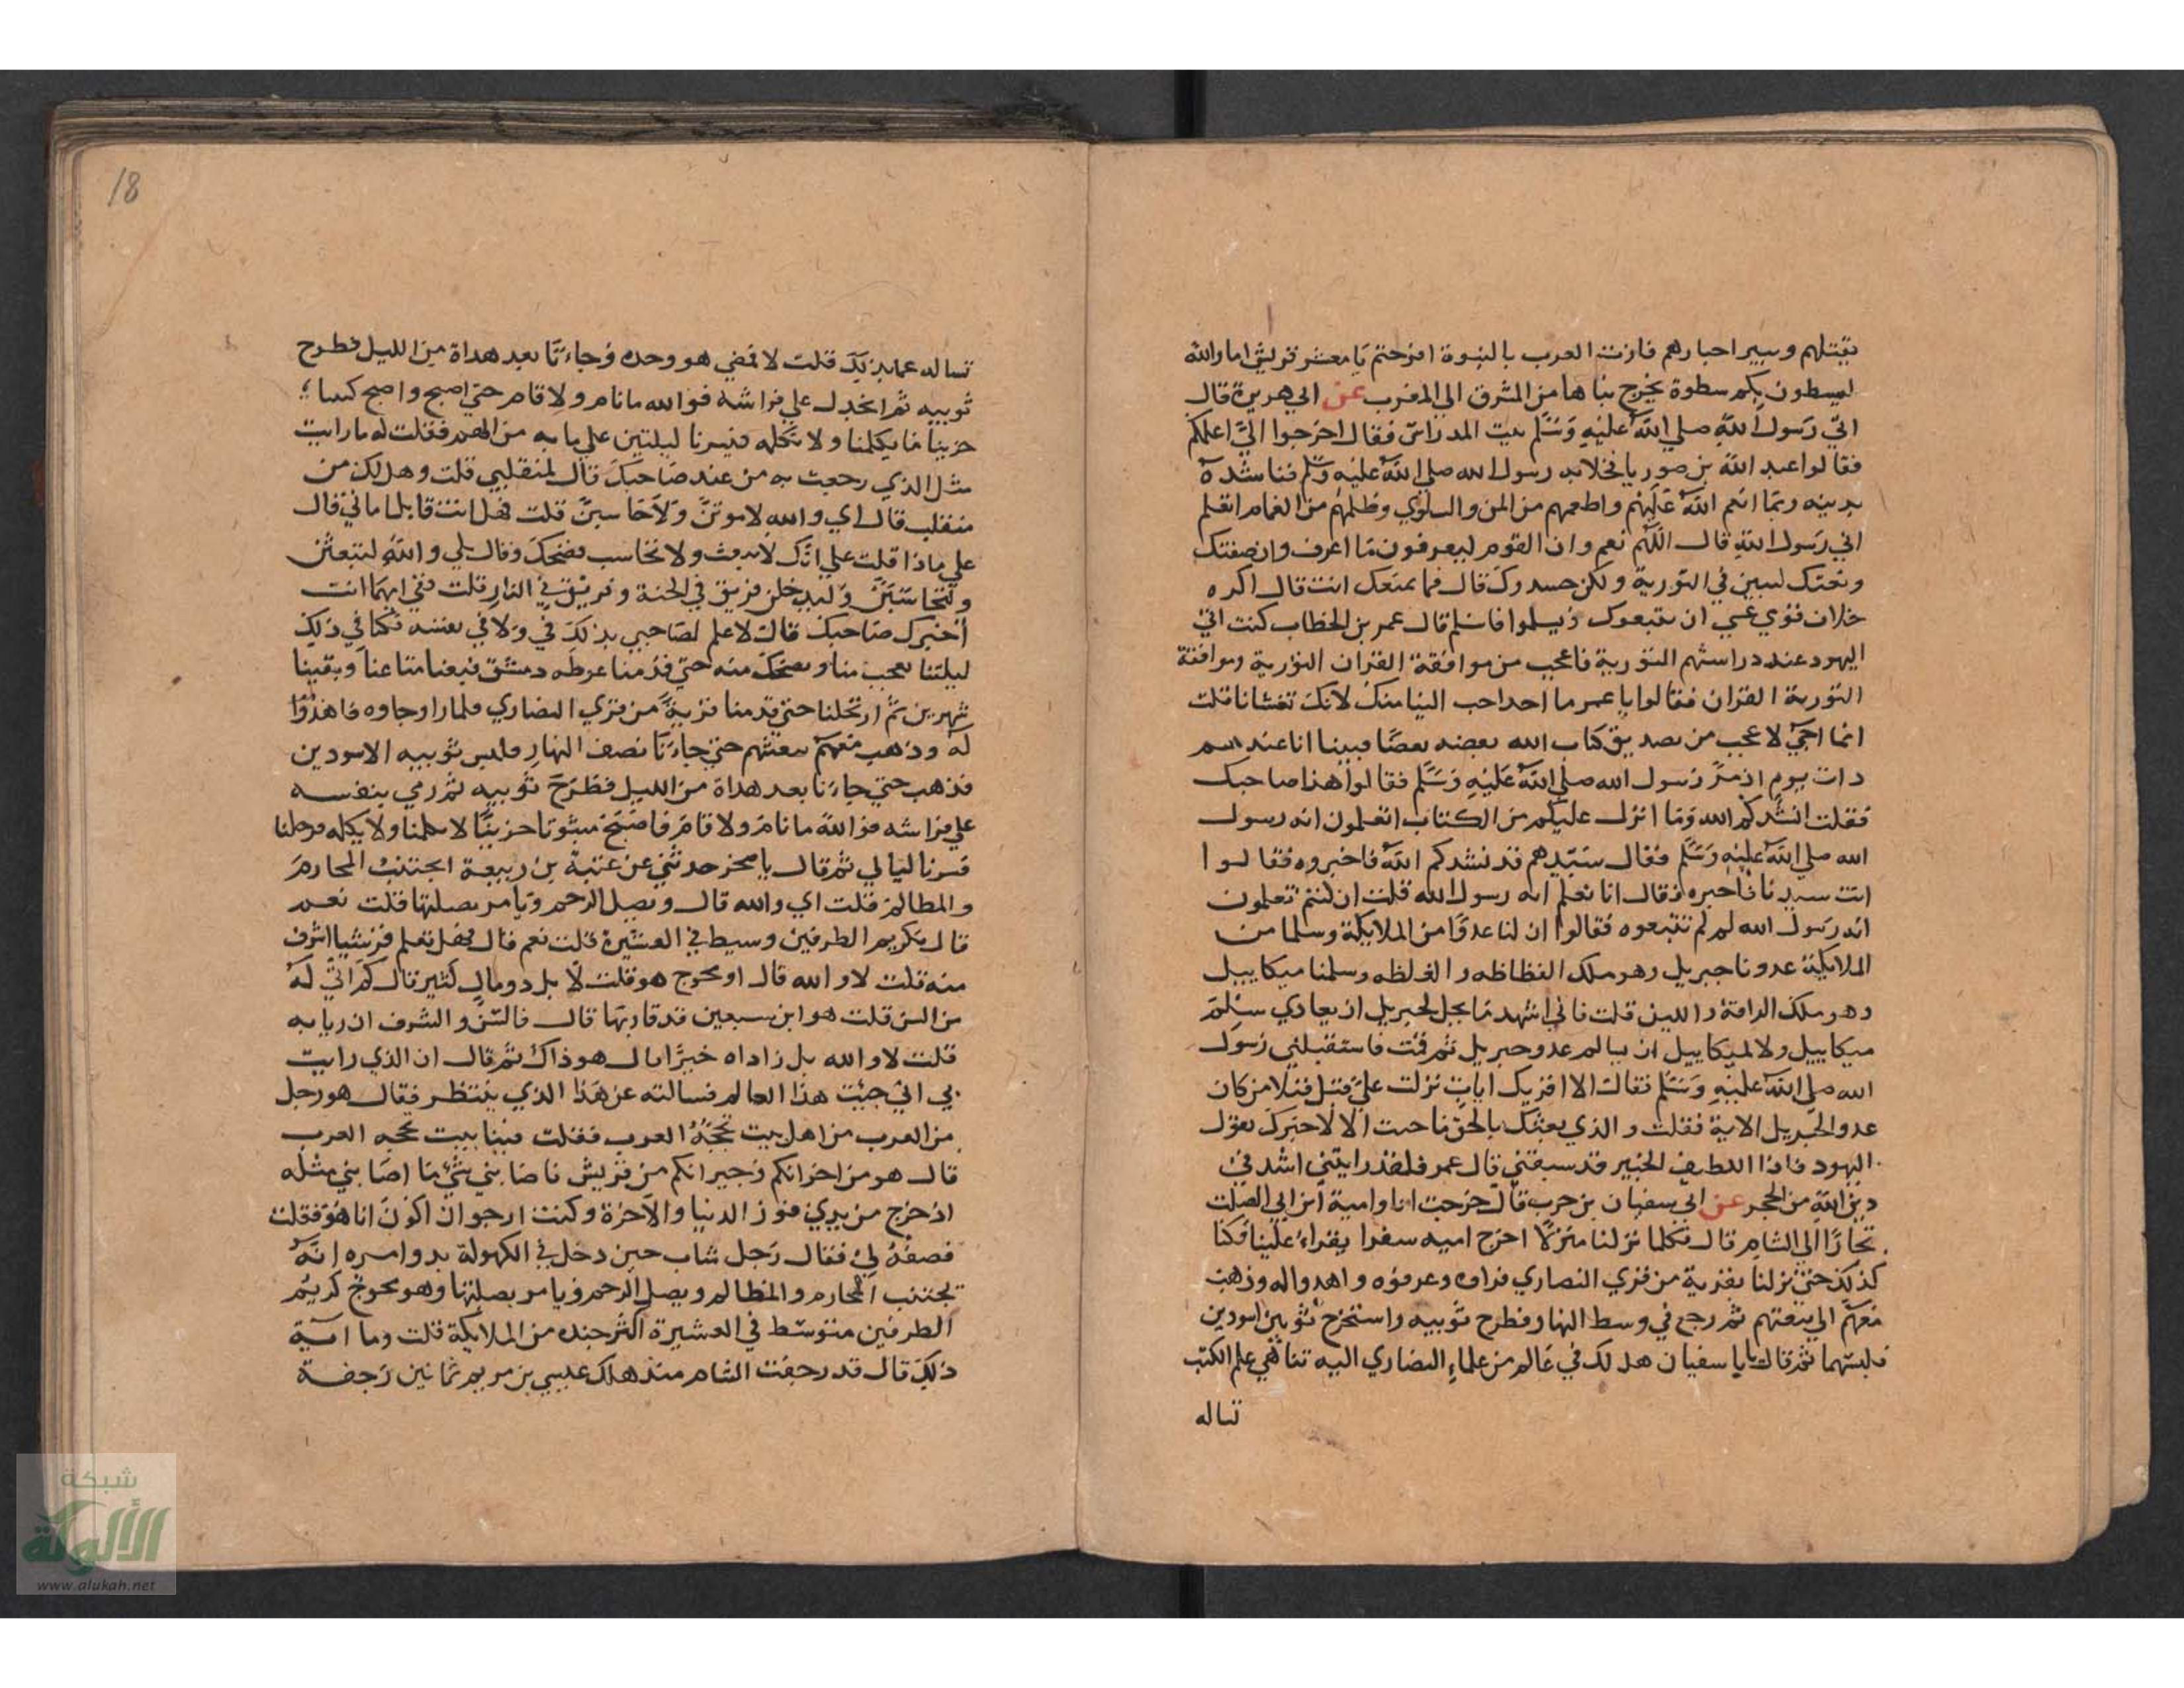 يقتلهم ويبير احبارهم فازت العرب بالنبوة افرحتم يا معشر قريش اما والله
ليسطون بكم سطوة يخرج نباها من المشرق الي المغرب عن ابي هريرة قال
اتي رسول الله صلي الله عليه وسلم بيت المدراس فقال اخرجوا الي اعلمكم
فقالوا عبد الله بن صوريا فخلا به رسول الله صلي الله عليه وسلم فناشده
بدينه وبما انعم الله عليهم واطعمهم من المن والسلوي وظللهم من الغمام اتعلم
اني رسول الله قال اللهم نعم وان القوم ليعرفون ما اعرف وان صفتك
ونعتك لمبين في التورية ولكن حسدوك قال فما يمنعك انت قال اكره
خلاف قومي عسي ان يتبعوك ويسلموا فاسلم قال عمر بن الخطاب كنت اتي
اليهود عند دراستهم التورية فاعجب من موافقة القران التورية وموافقة
التورية القران فقالوا يا عمر ما احد احب الينا منك لانك تغشانا قلت
انما اجي لاعجب من تصديق كتاب الله بعضه بعضا فبينا انا عندهم
ذات يوم اذ مر رسول الله صلي الله عليه وسلم فقالوا هذا صاحبك
فقلت انشدكم الله وما انزل عليكم من الكتاب اتعلمون انه رسول
الله صلي الله عليه وسلم فقال سيدهم قد نشدكم الله فاخبروه فقالوا
انت سيدنا فاخبره فقال انا نعلم انه رسول الله قلت ان كنتم تعلمون
انه رسول الله لم لم تتبعوه فقالوا ان لنا عدوا من الملايكة وسلما من
الملايكة عدونا جبريل وهو ملك الفظاظه والغلظه وسلمنا ميكاييل
وهو ملك الرافة والدين قلت فاني اشهد ما يحل لجبريل ان يعادي سلم
ميكاييل ولا لميكاييل ان يسالم عدو جبريل ثم قمت فاستقبلني رسول
الله صلي الله عليه وسلم فقال الا اقريك ايات نزلت علي قبل فتلا من كان
عدوا لجبريل الاية فقلت والذي بعثك بالحق ما جيت الا لاخبرك بقول
اليهود فاذا اللطيف الخبير قد سبقني قال عمر فلقد رايتني اشد في
دين الله من الحجر عن ابي سفيان بن حرب قال خرجت انا وامية بن ابي الصلت
تجارا الي الشام قال فكلما نزلنا منزلا اخرج اميه سفرا يقراه علينا فكنا
كذلك حتي نزلنا بقرية من قري النصاري فراوه وعرفوه واهدوا له وذهب
معهم الي بيعتهم ثم رجع في وسط النهار فطرح ثوبيه واستخرج ثوبين اسودين
فلبسهما ثم قال يا ابا سفيان هل لك في عالم من علماء النصاري اليه تناهي علم الكتب
تساله
18
تساله عما بذ لك قلت لا فمضي هو وحده وجاءنا بعد هداة من الليل فطرح
ثوبيه ثم انجدل علي فراشه فوالله ما نام ولا قام حتي اصبح واصبح كيبا
حزينا ما يكلمنا ولا نكلمه فسرنا ليلتين علي ما به من الهم فقلت له ما رايت
مثل الذي رجعت به من عند صاحبك قال لمنقلبي قلت وهل لك من
منقلب قال اي والله لاموتن ولاحاسبن قلت فهل انت قابل اماني قال
علي ماذا قلت علي انك لا تبعث ولا تحاسب فضحك وقال بلي والله لتبعثن
ولتحاسبن وليدخلن فريق في الجنة وفريق في النار قلت ففي ايهما انت
أخبرك صاحبك قال لا علم لصاحبي بذلك في ولا في نفسه فكنا في ذلك
ليلتنا يعجب منا ونضحك منه حتي قدمنا غوطه دمشق فبعنا متاعنا وبقينا
شهرين ثم ارتحلنا حتي قدمنا قرية من قري النصاري فلما راوه جاوه فاهدوا
له وذهب معهم بيعتهم حتي جاءنا نصف النهار فلبس ثوبيه الاسودين
فذهب حتي جاءنا بعد هداة من الليل فطرح ثوبيه ثم رمي بنفسه
علي فراشه فوالله ما نام ولا قام فاصبح مبثوثا حزينا لا يكلمنا ولا نكلمه فرحلنا
فسرنا ليالي ثم قال يا صخر حدثني عن عتبة بن ربيعة ايجتنب المحارم
والمظالم قلت اي والله قال ويصل الرحم ويامر بصلتها قلت نعم
قال فكريم الطرفين وسيط في العشيرة قلت نعم قال فهل تعلم قرشيا اشرف
منه قلت لا والله قال اومحوج هو قلت لا بل ذو مال كثير قال كم اتي له
من السن قلت هو ابن سبعين قد قاربها قال فالسن والشرف ازريا به
قلت لا والله بل زاداه خيرا قال هو ذاك ثم قال ان الذي رايت
بي اني جيت هذا العالم فسالته عن هذا الذي ينتظر فقال هو رجل
من العرب من اهل بيت تحجه العرب فقلت فينا بيت تحجه العرب
قال هو من اخوانكم وجيرانكم من قريش فاصابني شي ما اصابني مثله
اذ خرج من يدي فوز الدنيا والآخرة وكنت ارجو ان اكون انا هو فقلت
فصفه لي فقال رجل شاب حين دخل في الكهولة بدو امره انه
يجتنب المحارم والمظالم ويصل الرحم ويامر بصلتها وهو محوج كريم
الطرفين متوسط في العشيرة اكثر جنده من الملايكة قلت وما اية
ذلك قال قد رجفت الشام منذ هلك عيسي بن مريم ثمانين رجفة
شبكة
الألوكة
www.alukah.net